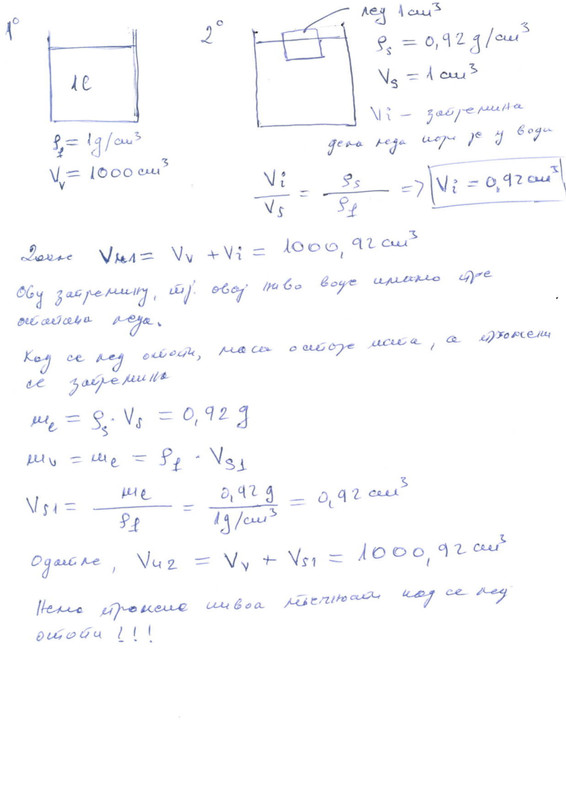 1° 2° лед 1cm³
1l
ρs = 0,92 g/cm³
Vs = 1cm³
ρf = 1g/cm³
Vv = 1000cm³
Vi – запремина
дела леда који је у води
Vi/Vs = ρs/ρf => Vi = 0,92cm³
Дакле Vu1 = Vv + Vi = 1000,92cm³
Ову запремину, тј. овај ниво воде имамо пре
отапања леда.
Кад се лед отопи, маса остаје иста, а промени
се запремина
me = ρs · Vs = 0,92 g
mv = me = ρf · Vs1
Vs1 = me/ρf = 0,92 g/1g/cm³ = 0,92 cm³
Одатле, Vu2 = Vv + Vs1 = 1000,92cm³
Нема промене нивоа течности кад се лед
отопи !!!